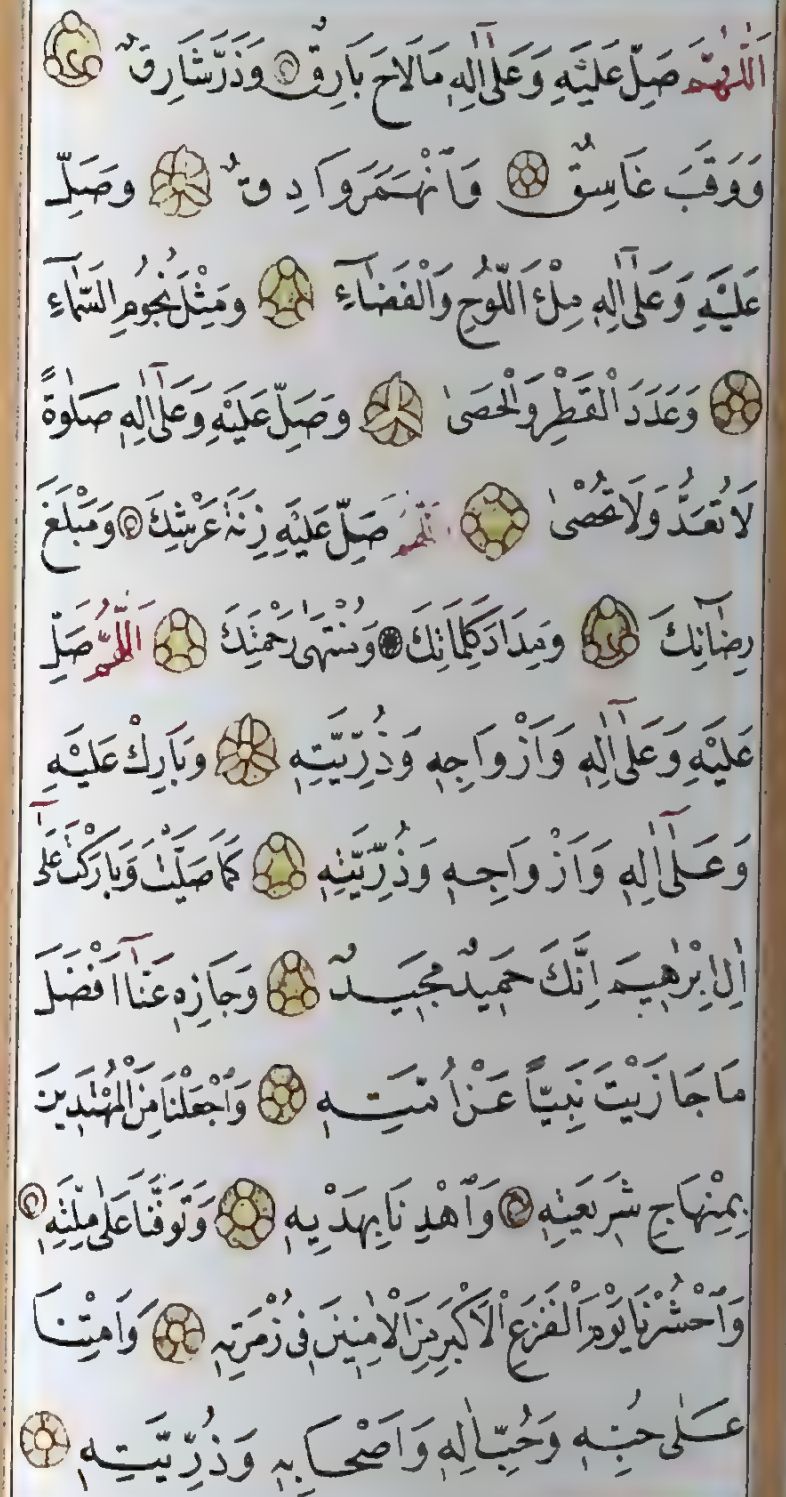 اَللّٰهُمَّ صَلِّ عَلَيْهِ وَعَلٰٓى اٰلِهٖ مَالَاحَ بَارِقٌ وَذَرَّشَارِقٌ
وَوَقَبَ غَاسِقٌ وَٱنْهَمَرَ وَادِقٌ وَصَلِّ
عَلَيْهِ وَعَلٰٓى اٰلِهٖ مِلْءَ اللَّوْحِ وَالْفَضَٓاءِ وَمِثْلَ نُجُومِ السَّمَٓاءِ
وَعَدَدَ الْقَطْرِ وَالْحَصٰى وَصَلِّ عَلَيْهِ وَعَلٰٓى اٰلِهٖ صَلٰوةً
لَا تُعَدُّ وَلَا تُحْصٰى اَللّٰهُمَّ صَلِّ عَلَيْهِ زِنَةَ عَرْشِكَ وَمَبْلَغَ
رِضَٓائِكَ وَمِدَادَ كَلِمَاتِكَ وَمُنْتَهٰى رَحْمَتِكَ اَللّٰهُمَّ صَلِّ
عَلَيْهِ وَعَلٰٓى اٰلِهٖ وَاَزْوَاجِهٖ وَذُرِّيَّتِهٖ وَبَارِكْ عَلَيْهِ
وَعَلٰٓى اٰلِهٖ وَاَزْوَاجِهٖ وَذُرِّيَّتِهٖ كَمَا صَلَّيْتَ وَبَارَكْتَ عَلٰٓى
اٰلِ اِبْرٰهِيمَ اِنَّكَ حَمِيدٌ مَجِيدٌ وَجَازِهٖ عَنَّٓا اَفْضَلَ
مَا جَازَيْتَ نَبِيًّا عَنْ اُمَّتِهٖ وَٱجْعَلْنَا مِنَ الْمُهْتَدِينَ
بِمِنْهَاجِ شَرِيعَتِهٖ وَٱهْدِنَا بِهَدْيِهٖ وَتَوَفَّنَا عَلٰى مِلَّتِهٖ
وَٱحْشُرْنَا يَوْمَ الْفَزَعِ الْاَكْبَرِ مِنَ الْاٰمِنِينَ فِى زُمْرَتِهٖ وَاَمِتْنَا
عَلٰى حُبِّهٖ وَحُبِّ اٰلِهٖ وَاَصْحَابِهٖ وَذُرِّيَّتِهٖ